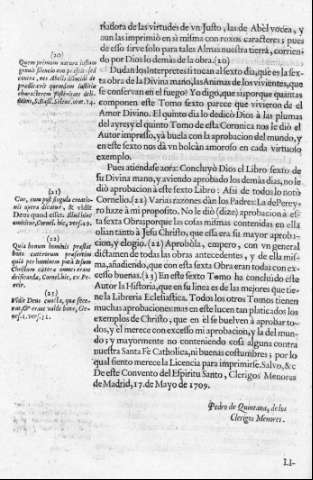 riadora de las virtudes de vn Justo, las de Abèl vocea, y
aun las imprimiò en si misma con roxos caracteres; pues
de esso sirve solo para tales Almas nuestra tierra, corrien-
do por Dios lo demàs de la obra.(20)
Dudan los Interpretes si tocan al sexto dia, que es la sex-
ta obra de la Divina mano, las Animas de los vivientes, que
se conservan en el fuego? Yo digo, que si, porque quantas
componen este Tomo sexto parece que vivieron de el
Amor Divino. El quinto dia lo dedicò Dios à las plumas
del ayre; y el quinto Tomo de esta Coronica nos le diò el
Autor impresso, yà buela con la aprobacion del mundo, y
en este sexto nos dà vn bolcàn amoroso en cada virtuoso
exemplo.
Pues atiendase aora: Concluyò Dios el Libro sexto de
su Divina mano, y aviendo aprobado los demàs dias, no le
diò aprobacion à este sexto Libro: Assi de todo lo notò
Cornelio.(21) Varias razones dàn los Padres: La de Perey-
ro haze à mi proposito. No le diò (dize) aprobacion à es-
ta sexta Obra, porque las cosas mismas contenidas en ella
olian tanto à Jesu Christo, que essa era su mayor aproba-
cion, y elogio.(22) Aprobòla, empero, con vn general
dictamen de todas las obras antecedentes, y de ella mis-
ma, añadiendo, que con esta sexta Obra eran todas con ex-
cesso buenas.(23) En este sexto Tomo ha concluido este
Autor la Historia, que en su linea es de las mejores que tie-
ne la Libreria Eclesiastica. Todos los otros Tomos tienen
muchas aprobaciones: mas en este lucen tan platicados los
exemplos de Christo, que en èl se buelven à aprobar to-
dos, y el merece con excesso mi aprobacion, y la del mun-
do; y mayormente no conteniendo cosa alguna contra
nuestra Santa Fè Catholica, ni buenas costumbres; por lo
qual siento merece la Licencia para imprimirse. Salvo, &c
De este Convento del Espiritu Santo, Clerigos Menores
de Madrid, 17. de Mayo de 1709.
Pedro de Quintana, de los
Clerigos Menores.
LI-
(20)
(21)
(22)
Quia homun hominis præstat
(23)
Vidit Deus cuncta, que fece-